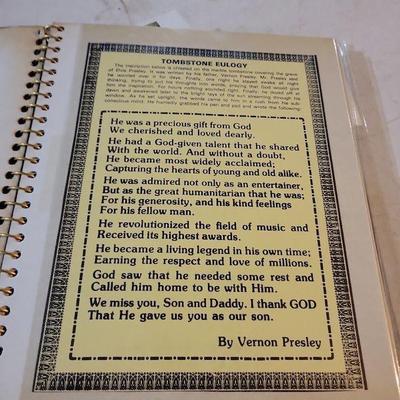 TOMBSTONE EULOGY
The inscription below is chiseled on the marble tombstone covering the grave
of Elvis Presley. It was written by his father, Vernon Presley. Mr. Presley said
he worried over it for days. Finally, one night he stayed awake all night
thinking, trying to put his thoughts into words, praying that God would give
him the inspiration. For hours nothing satisfied him. Finally, he dozed off at
dawn and awakened later to the bright rays of the sun streaming through his
window. As he sat upright, the words came to him in a rush from his sub-
conscious mind. He hurriedly grabbed his pen and pad and wrote the following:
He was a precious gift from God
We cherished and loved dearly.
He had a God-given talent that he shared
With the world. And without a doubt,
He became most widely acclaimed;
Capturing the hearts of young and old alike.
He was admired not only as an entertainer,
But as the great humanitarian that he was;
For his generosity, and his kind feelings
For his fellow man.
He revolutionized the field of music and
Received its highest awards.
He became a living legend in his own time;
Earning the respect and love of millions.
God saw that he needed some rest and
Called him home to be with Him.
We miss you, Son and Daddy. I thank GOD
That He gave us you as our son.
By Vernon Presley